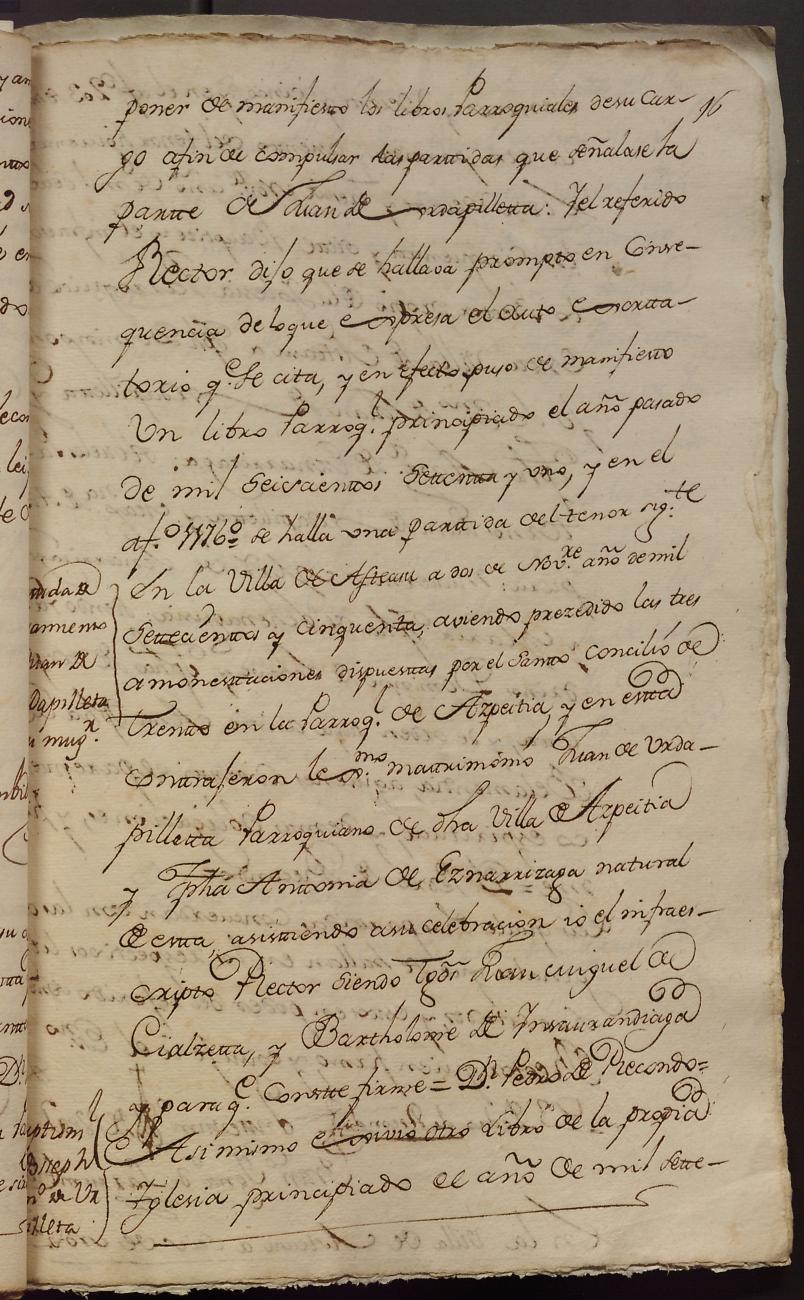 16
poner de manifiesto los libros Parroquiales de su Car-
go afin de compulsar las parttidas que señalase la
partte de Juan de Urdapilletta: Y el referido
Rector dijo que se hallava prompto en Conse-
quencia de lo que expresa el Auto exortta-
torio q.e Se cita, y en efecto puso de manifiesto
Un libro Parroq.l principiado el año pasado
de mil Seiscientos Settentta y uno, y en el
al f.o 1176.o se halla una parttida del tenor sig.te
En la Villa de Asteasu a dos de Nov.re año de mil
Settecientos y cinquenta, aviendo prezedido las tres
amonesttaciones dispuesttas por el Santo Concilio de
Trento en la Parroq.l de Azpeitia, y en estta
contrajeron lexmo mattrimonio Juan de Urda-
pilletta Parroquiano de dha Villa de Azpeitia
y Jpha Anttonia de Eznarrizaga natural
de estta, asisttiendo a su celebracion io el infraes-
cripto Rector Siendo Tgōs Juan Miguel de
Cialzetta, y Bartholome de Insaurandiaga
y para q.e Constte firme = D.n Pedro de Recondo =
Asimismo exivio otro Libro de la propia
Iglesia principiado el año de mil sette-
Juan de
Dapilleta
mug.r
Joseph
de Ur
illeta